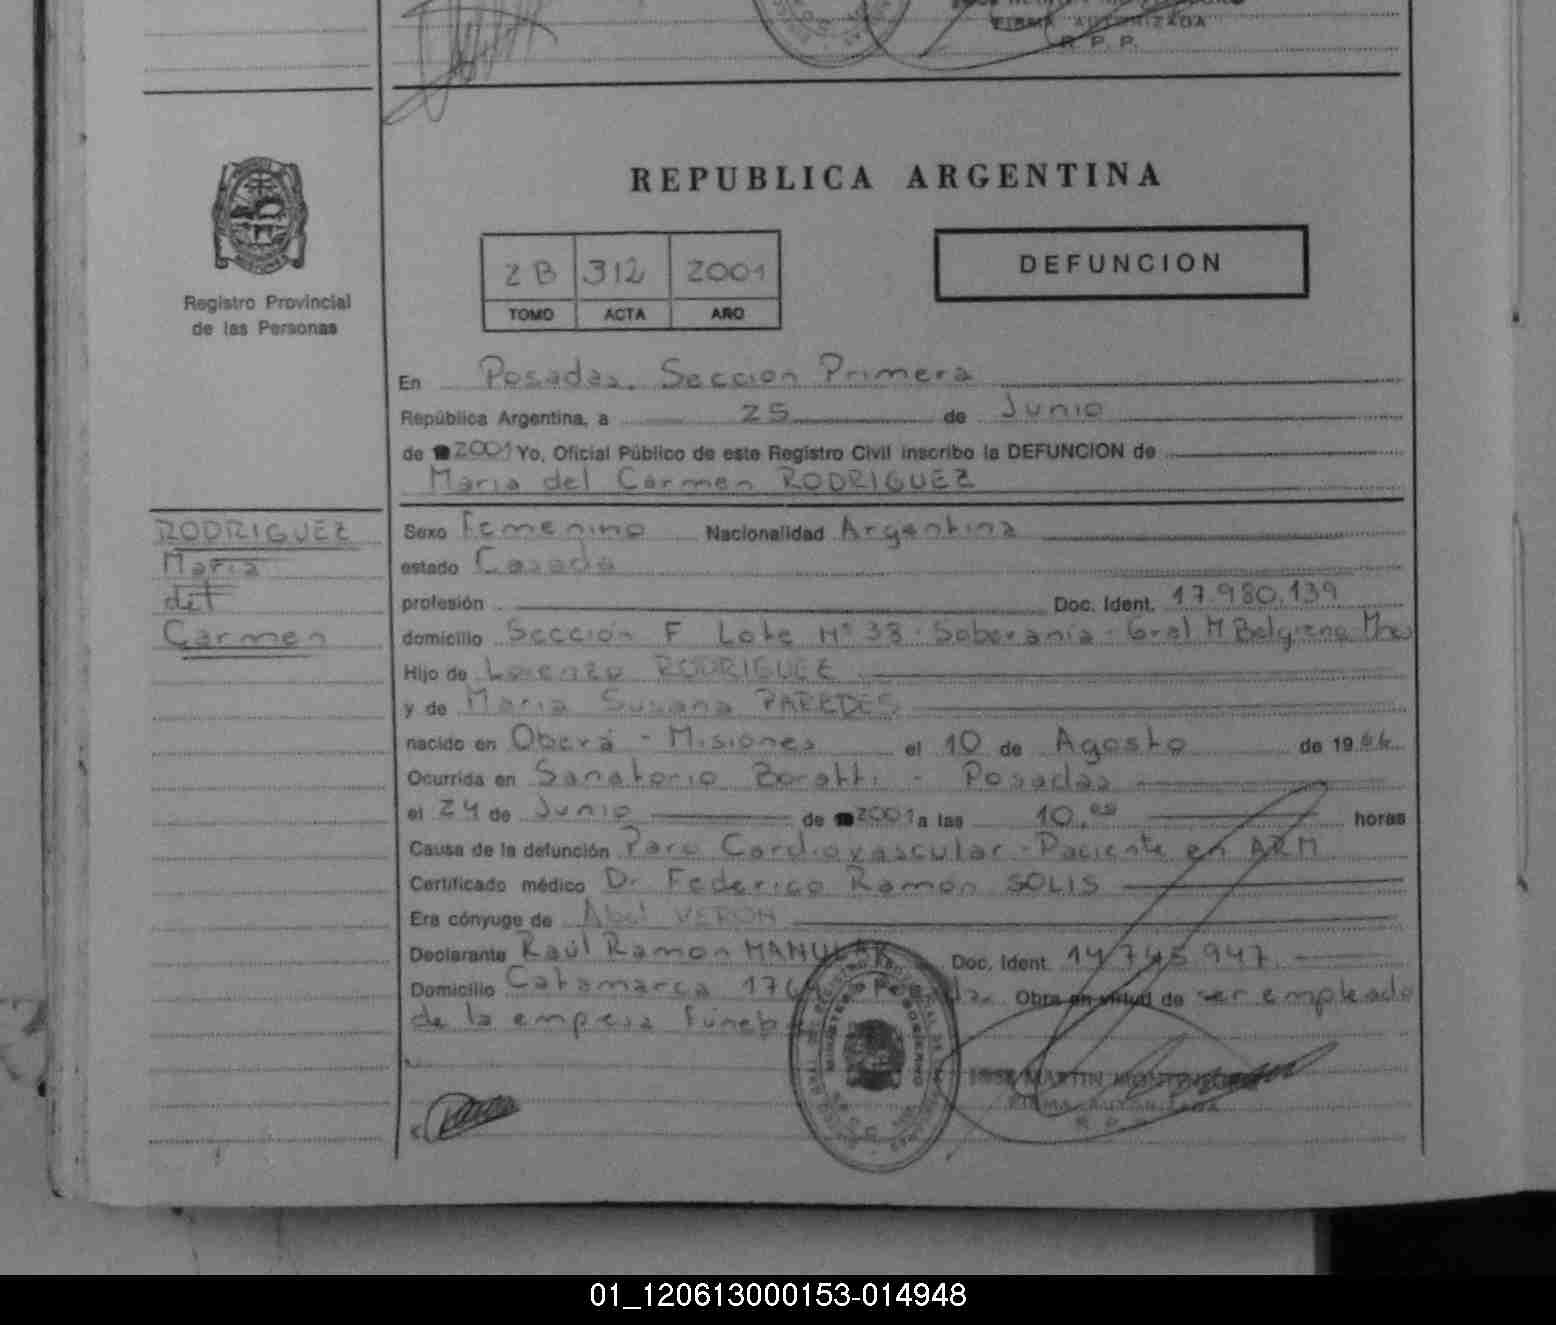 FIRMA AUTORIZADA
R. P. P.
REPUBLICA ARGENTINA
2B 312 2001
TOMO ACTA AÑO
DEFUNCION
Registro Provincial
de las Personas
En Posadas. Seccion Primera
República Argentina, a 25 de Junio
de 2001 Yo, Oficial Público de este Registro Civil inscribo la DEFUNCION de
Maria del Carmen RODRIGUEZ
RODRIGUEZ
Maria
del
Carmen
Sexo Femenino Nacionalidad Argentina
estado Casada
profesión Doc. Ident. 17.980.139
domicilio Sección F Lote Nº 38 - Soberanía - Gral M Belgrano Mnes
Hijo de Lorenzo RODRIGUEZ
y de Maria Susana PAREDES
nacido en Oberá - Misiones el 10 de Agosto de 19
Ocurrida en Sanatorio Boratti - Posadas
el 24 de Junio de 2001 a las 10,00 horas
Causa de la defunción Paro Cardiovascular - Paciente en ARM
Certificado médico Dr Federico Ramón SOLIS
Era cónyuge de Abel VERON
Declarante Raúl Ramon Doc. Ident. 14.745.947
Domicilio Catamarca Obra en virtud de ser empleado
de la empresa
MINISTERIO DE GOBIERNO
JOSE MARTIN
FIRMA AUTORIZADA
R. P.
01_120613000153-014948